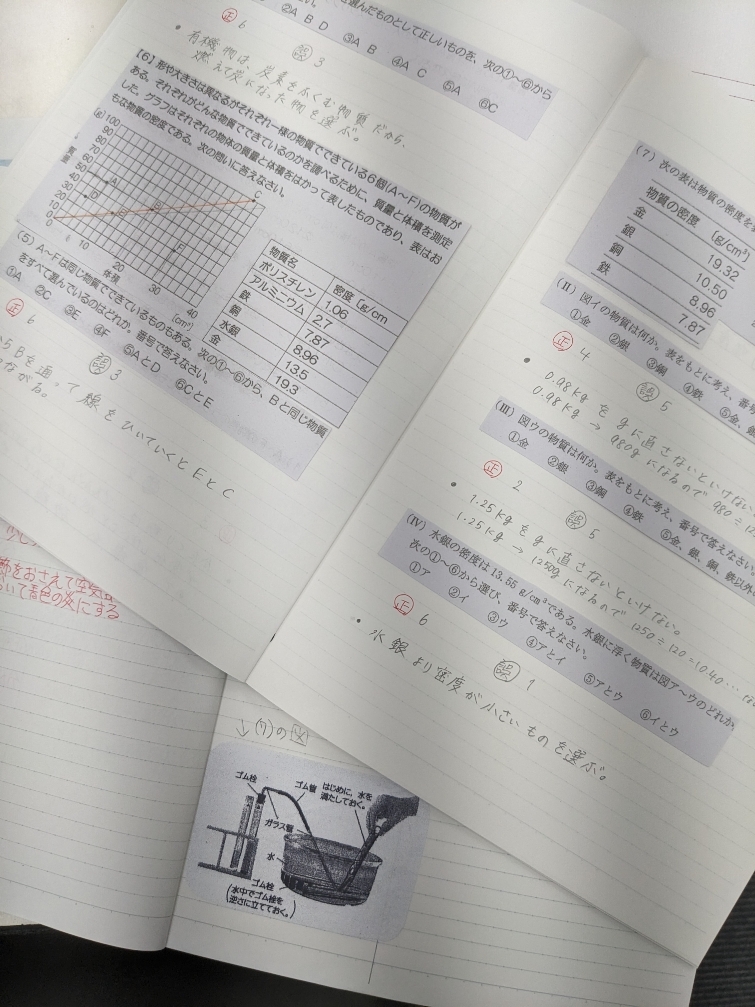 選んだものとして正しいものを、次の①～⑥から
②A B D ③A B ④A C ⑤A ⑥C
正 6 誤 3
・有機物は、炭素をふくむ物質だから、
燃えて炭になった物を選ぶ。
【6】形や大きさは異なるがそれぞれ一様の物質でできている6個(A～F)の物質が
ある。それぞれがどんな物質でできているのかを調べるために、質量と体積を測定
した。グラフはそれぞれの物体の質量と体積をはかって表したものであり、表はお
もな物質の密度である。次の問いに答えなさい。
(g) 100
90
80
70
60
50
40
30
20
10
0
質量
A
D
E
B
C
F
10
20
30
40
体積 (cm³)
物質名 密度〔g/cm
ポリスチレン 1.06
アルミニウム 2.7
鉄 7.87
銅 8.96
水銀 13.5
金 19.3
(5)A～Fは同じ物質でできているものもある。次の①～⑥から、Bと同じ物質
をすべて選んでいるのはどれか。番号で答えなさい。
①A ②C ③E ④F ⑤AとD ⑥CとE
正 6 誤 3
らBを通って線をひいていくとEとC
ながる。
少し
節をおさえて空気
いて青色の炎にする
(7) 次の表は物質の密度を
物質の密度 〔g/cm³〕
金 19.32
銀 10.50
銅 8.96
鉄 7.87
(II) 図イの物質は何か。表をもとに考え、番号
①金 ②銀 ③銅 ④鉄 ⑤金、銀
正 4 誤 5
・0.98kgをgに直さないといけない
0.98kg → 980gになるので 980÷12
(III) 図ウの物質は何か。表をもとに考え、番号で答えなさい。
①金 ②銀 ③銅 ④鉄 ⑤金、銀、銅、鉄以外
正 2 誤 5
・1.25kgをgに直さないといけない。
1.25kg → 1250gになるので 1250÷120=10.40…
(IV) 水銀の密度は13.55g/cm³である。水銀に浮く物質は図ア～ウのどれか。
次の①～⑥から選び、番号で答えなさい。
①ア ②イ ③ウ ④アとイ ⑤アとウ ⑥イとウ
正 6 誤 1
・水銀より密度が小さいものを選ぶ。
↓(7)の図
ゴム栓
ゴム管
はじめに、水を
満たしておく。
ガラス管
水
ゴム栓
(水中でゴム栓を
逆さに立てておく。)